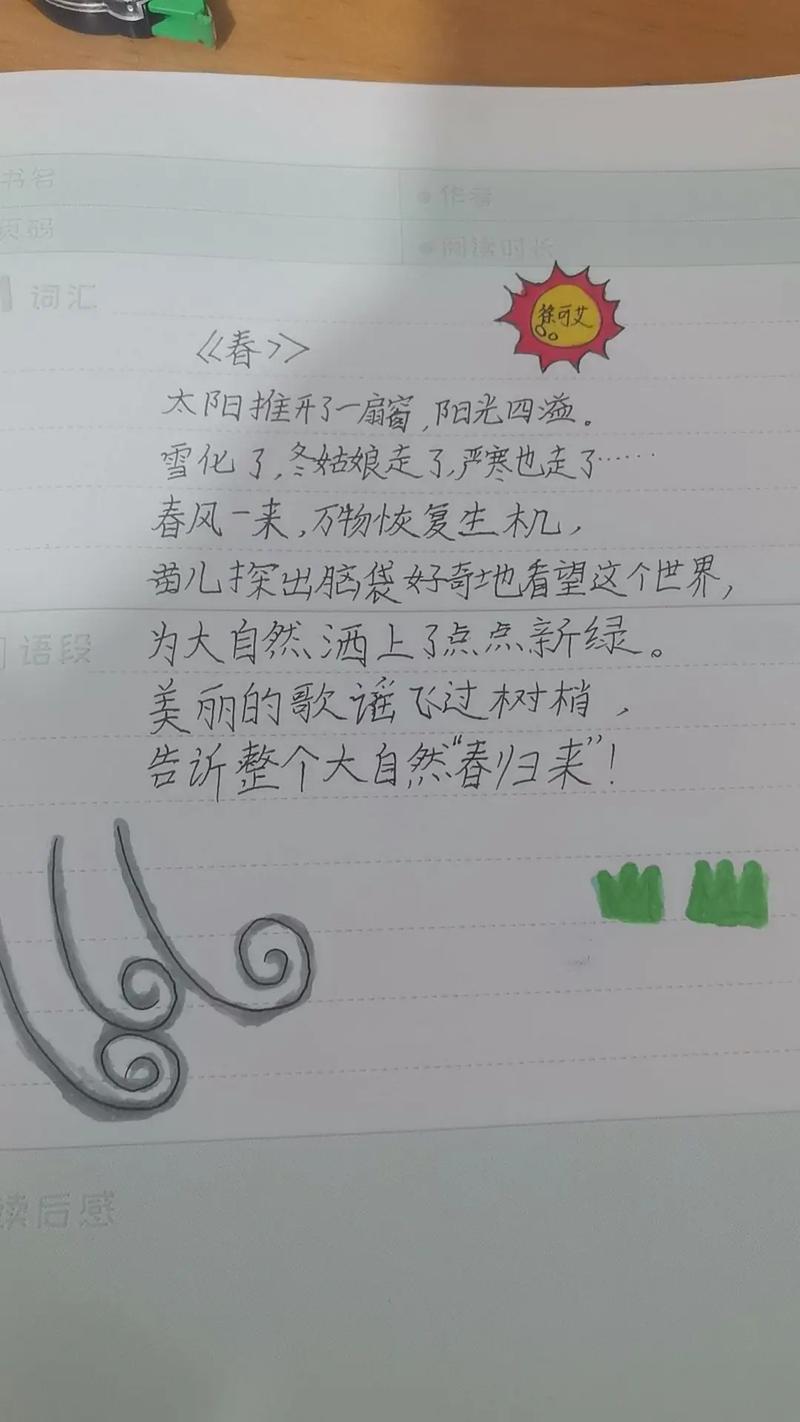 书名
作者
页码
阅读时长
词汇
徐可艾
《春》
太阳推开了一扇窗,阳光四溢。
雪化了,冬姑娘走了,严寒也走了……
春风一来,万物恢复生机,
苗儿探出脑袋好奇地看望这个世界,
语段
为大自然洒上了点点新绿。
美丽的歌谣飞过树梢,
告诉整个大自然“春归来”!
读后感